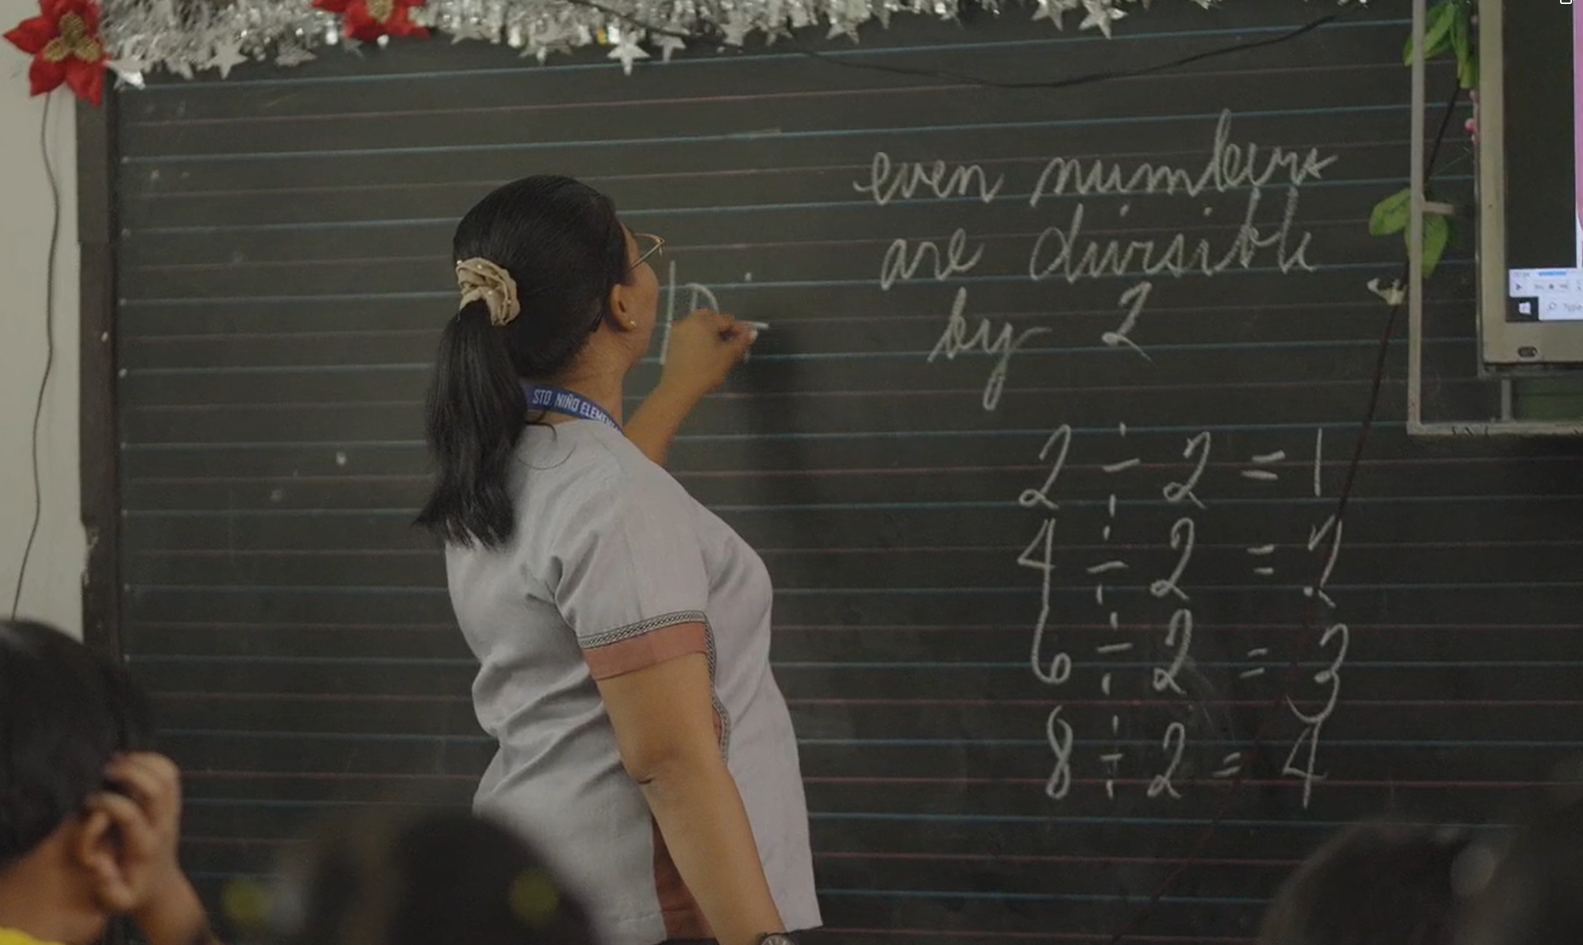 even numbers
are divisible
by 2
2 ÷ 2 = 1
4 ÷ 2 = 2
6 ÷ 2 = 3
8 ÷ 2 = 4
STO NIÑO ELEM